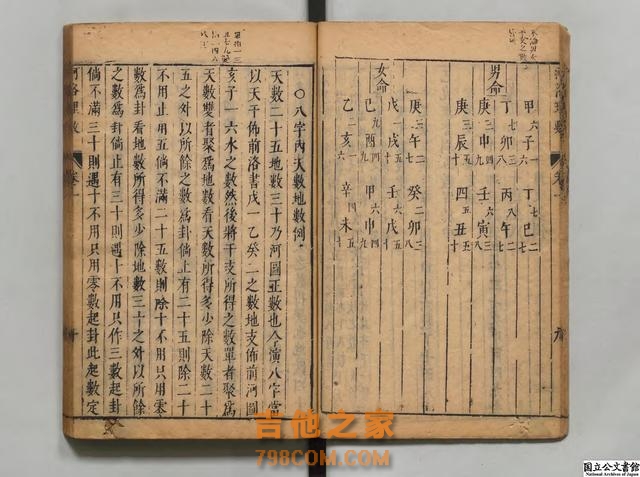 甲六子一 丁七巳二七
男命 丁七卯三八 丙八午二七
庚三申四九 壬六寅三八
庚三辰五十 丑五十
庚三午二七 癸二卯三八
女命 戊一戌五十 壬六戌五十
己九酉四九 甲六申四九
乙二亥一六 辛四未五十
○八字內天數地數例
天數二十五地數三十乃河圖正數也今演八字當
以天干佈前洛書戊一乙癸二之數地支佈前河圖
亥子一六水之數然後將干支所得之數單者聚爲
天數雙者聚爲地數看天數所得多少除天數二十
五之外以所餘之數爲卦倘止有二十五則除二十
不用止用五倘不滿二十五數則除十不用只用零
數爲卦看地數所得多少除地數三十之外以所餘
之數爲卦倘止有三十則遇十不用只作三數起卦
倘不滿三十則遇十不用只用零數起卦此起數定
河洛理數 卷一
吉他之家
798COM.COM
国立公文書館
National Archives of Japan